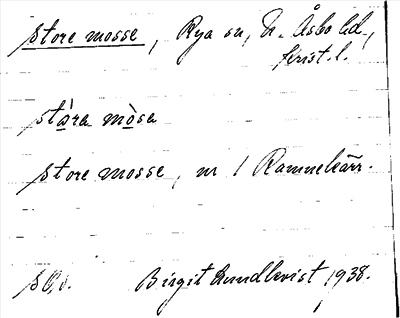 Store mosse, Rya sn, N. Åsbo hd,
Krist. l.
stǻra mòse
Store mosse, nr 1 Ramnekärr.
Birgit Lundkvist 1938.